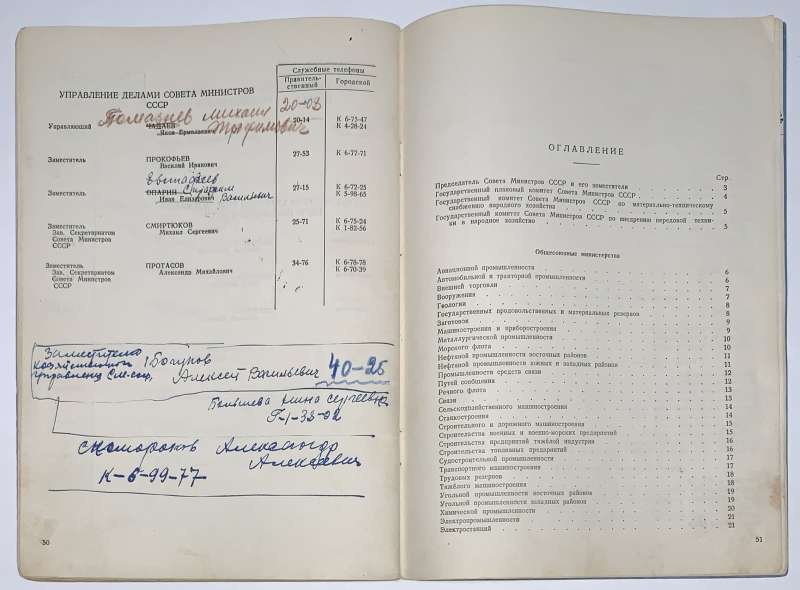 УПРАВЛЕНИЕ ДЕЛАМИ СОВЕТА МИНИСТРОВ
СССР
Служебные телефоны
Правитель-
ственный
Городской
Помазнев Михаил 20-03
Трофимович
Управляющий ЧАДАЕВ 20-14 К 6-75-47
Яков Ермолаевич К 4-28-24
Заместитель ПРОКОФЬЕВ 27-53 К 6-77-71
Василий
Евстафьев
Заместитель ОПАРИН 27-15 К 6-72-25
Иван Васильевич К 5-98-65
Заместитель СМИРТЮКОВ 25-71 К 6-75-24
Зав. Секретариатом Михаил Сергеевич К 1-82-56
Совета Министров
СССР
Заместитель ПРОТАСОВ 34-76 К 6-78-78
Зав. Секретариатом Александр Михайлович К 6-70-39
Совета Министров
СССР
Заместитель
хозяйственного Богуров
Алексей Васильевич 40-25
Нина Сергеевна
Г-1-33-02
Скоморохов Александр
Алексеевич
К-6-99-77
50
ОГЛАВЛЕНИЕ
Стр.
Председатель Совета Министров СССР и его заместители 3
Государственный плановый комитет Совета Министров СССР 4
Государственный комитет Совета Министров СССР по материально-техническому
снабжению народного хозяйства 5
Государственный комитет Совета Министров СССР по внедрению передовой техни-
ки в народное хозяйство 5
Общесоюзные министерства
Авиационной промышленности 6
Автомобильной и тракторной промышленности 6
Внешней торговли 7
Вооружения 7
Геологии 8
Государственных продовольственных и материальных резервов 8
Заготовок 9
Машиностроения и приборостроения 9
Металлургической промышленности 10
Морского флота 10
Нефтяной промышленности восточных районов 11
Нефтяной промышленности южных и западных районов 11
Промышленности средств связи 12
Путей сообщения 12
Речного флота 13
Связи 13
Сельскохозяйственного машиностроения 14
Станкостроения 14
Строительного и дорожного машиностроения 15
Строительства военных и военно-морских предприятий 15
Строительства предприятий тяжёлой индустрии 16
Строительства топливных предприятий 16
Судостроительной промышленности 17
Транспортного машиностроения 17
Трудовых резервов 18
Тяжёлого машиностроения 18
Угольной промышленности восточных районов 19
Угольной промышленности западных районов 19
Химической промышленности 20
Электропромышленности 21
Электростанций 21
51